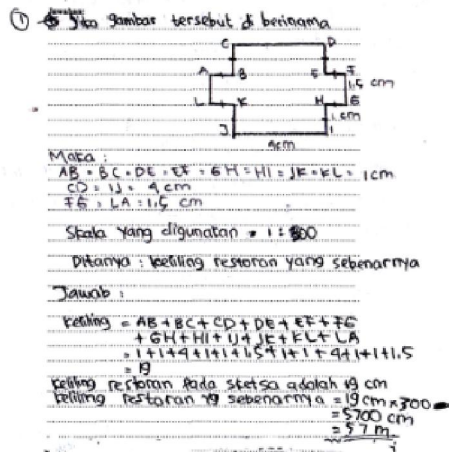 ① Jika gambar tersebut di berinama
C D
A B E F
1,5 cm
L K H G
1 cm
J I
4cm
Maka :
AB = BC = DE = EF = GH = HI = JK = KL = 1cm
CD = IJ = 4 cm
FG = LA = 1,5 cm
Skala yang digunakan = 1 : 300
Ditanya : keliling restoran yang sebenarnya
Jawab :
Keliling = AB + BC + CD + DE + EF + FG
+ GH + HI + IJ + JK + KL + LA
= 1 + 1 + 4 + 1 + 1 + 1,5 + 1 + 1 + 4 + 1 + 1 + 1,5
= 19
keliling restoran pada sketsa adalah 19 cm
keliling restoran yg sebenarnya = 19 cm x 300
= 5700 cm
= 57 m